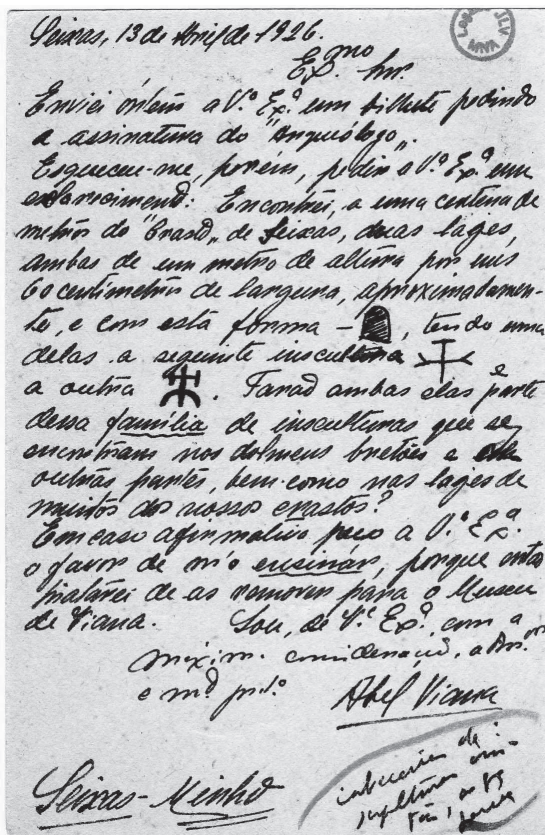 Seixas, 13 de Abril de 1926.
Ex.mo Snr.
Enviei ontem a V.ª Ex.ª um bilhete pedindo
a assinatura do "Arqueólogo".
Esqueceu-me, porem, pedir a V.ª Ex.ª um
esclarecimento: Encontrei, a uma centena de
metros do "Crasto" de Seixas, duas lages,
ambas de um metro de altura por uns
60 centimetros de largura, aproximadamen-
te, e com esta forma - , tendo uma
delas a seguinte inscultura e
a outra . Farão ambas elas parte
dessa família de insculturas que se
encontram nos dolmens bretões e
outras partes, bem como nas lages de
muitos dos nossos crastos?
Em caso afirmativo peço a V.ª Ex.ª
o favor de m'o ensinar, porque então
tratarei de as remover para o Museu
de Viana. Sou, de V.ª Ex.ª, com a
maxim. consideração, a Am.or
e m.to
Abel Viana
Seixas-Minho
cabeceiras de
sepulturas
MNA